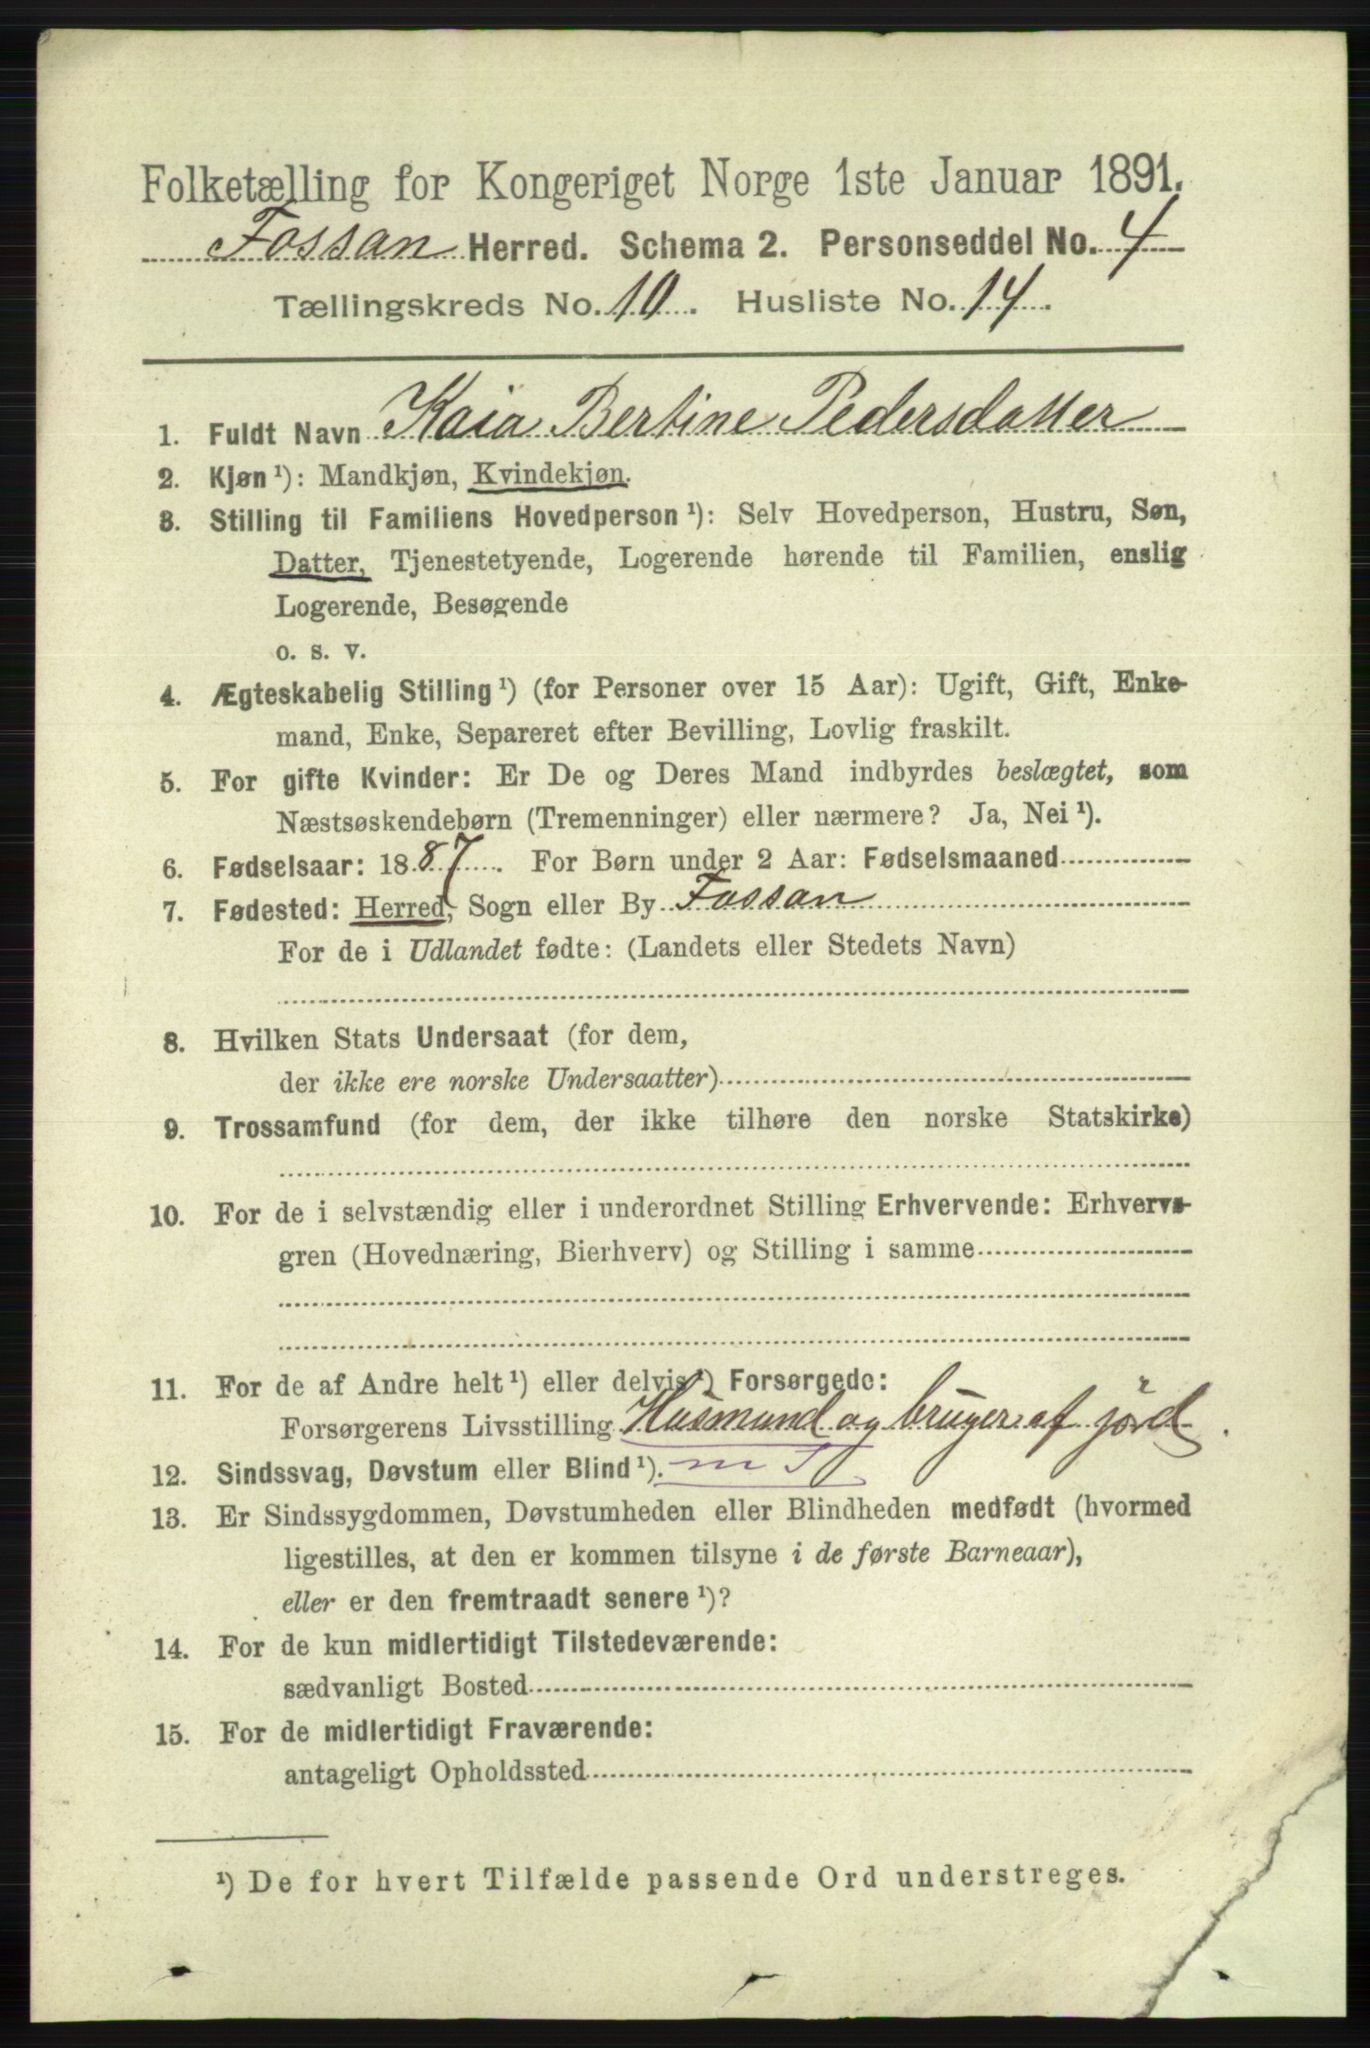 Folketælling for Kongeriget Norge 1ste Januar 1891.
Fossan Herred. Schema 2. Personseddel No. 4
Tællingskreds No. 10. Husliste No. 14.
1. Fuldt Navn Kaia Bertine Pedersdatter
2. Kjøn¹): Mandkjøn, Kvindekjøn.
3. Stilling til Familiens Hovedperson¹): Selv Hovedperson, Hustru, Søn,
Datter, Tjenestetyende, Logerende hørende til Familien, enslig
Logerende, Besøgende
o. s. v.
4. Ægteskabelig Stilling¹) (for Personer over 15 Aar): Ugift, Gift, Enke-
mand, Enke, Separeret efter Bevilling, Lovlig fraskilt.
5. For gifte Kvinder: Er De og Deres Mand indbyrdes beslægtet, som
Næstsøskendebørn (Tremenninger) eller nærmere? Ja, Nei¹).
6. Fødselsaar: 1887. For Børn under 2 Aar: Fødselsmaaned
7. Fødested: Herred, Sogn eller By Fossan
For de i Udlandet fødte: (Landets eller Stedets Navn)
8. Hvilken Stats Undersaat (for dem,
der ikke ere norske Undersaatter)
9. Trossamfund (for dem, der ikke tilhøre den norske Statskirke)
10. For de i selvstændig eller i underordnet Stilling Erhvervende: Erhvervs-
gren (Hovednæring, Bierhverv) og Stilling i samme
11. For de af Andre helt¹) eller delvis¹) Forsørgede:
Forsørgerens Livsstilling Husmand og bruger af jord.
12. Sindssvag, Døvstum eller Blind¹).
13. Er Sindssygdommen, Døvstumheden eller Blindheden medfødt (hvormed
ligestilles, at den er kommen tilsyne i de første Barneaar),
eller er den fremtraadt senere¹)?
14. For de kun midlertidigt Tilstedeværende:
sædvanligt Bosted
15. For de midlertidigt Fraværende:
antageligt Opholdssted
¹) De for hvert Tilfælde passende Ord understreges.